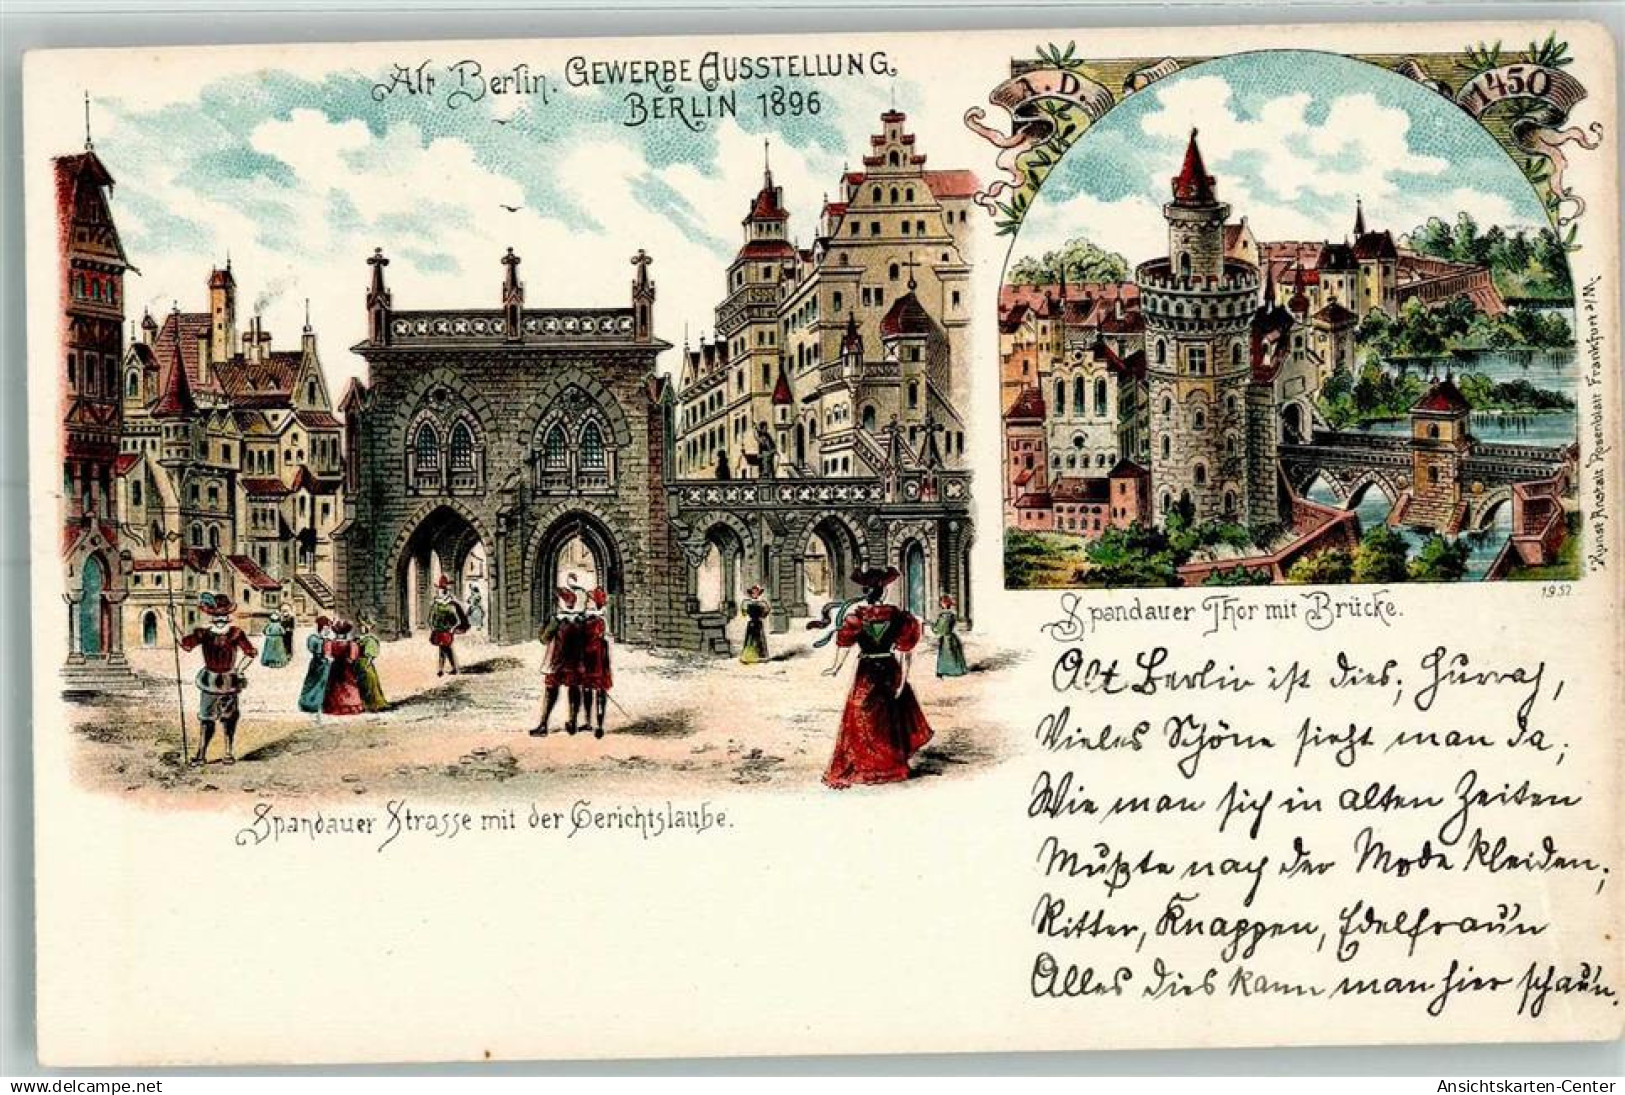 Alt Berlin. GEWERBE AUSSTELLUNG.
BERLIN 1896
A. D. 1450
Kunst Anstalt Rosenblatt Frankfurt a/M.
1952
Spandauer Thor mit Brücke.
Spandauer Strasse mit der Gerichtslaube.
Alt Berlin ist dies; Hurrah,
Vieles Schöne sieht man da;
Wie man sich in alten Zeiten
Mußte nach der Mode kleiden;
Ritter, Knappen, Edelfrau'n
Alles dies kann man hier schau'n.
www.delcampe.net
Ansichtskarten-Center